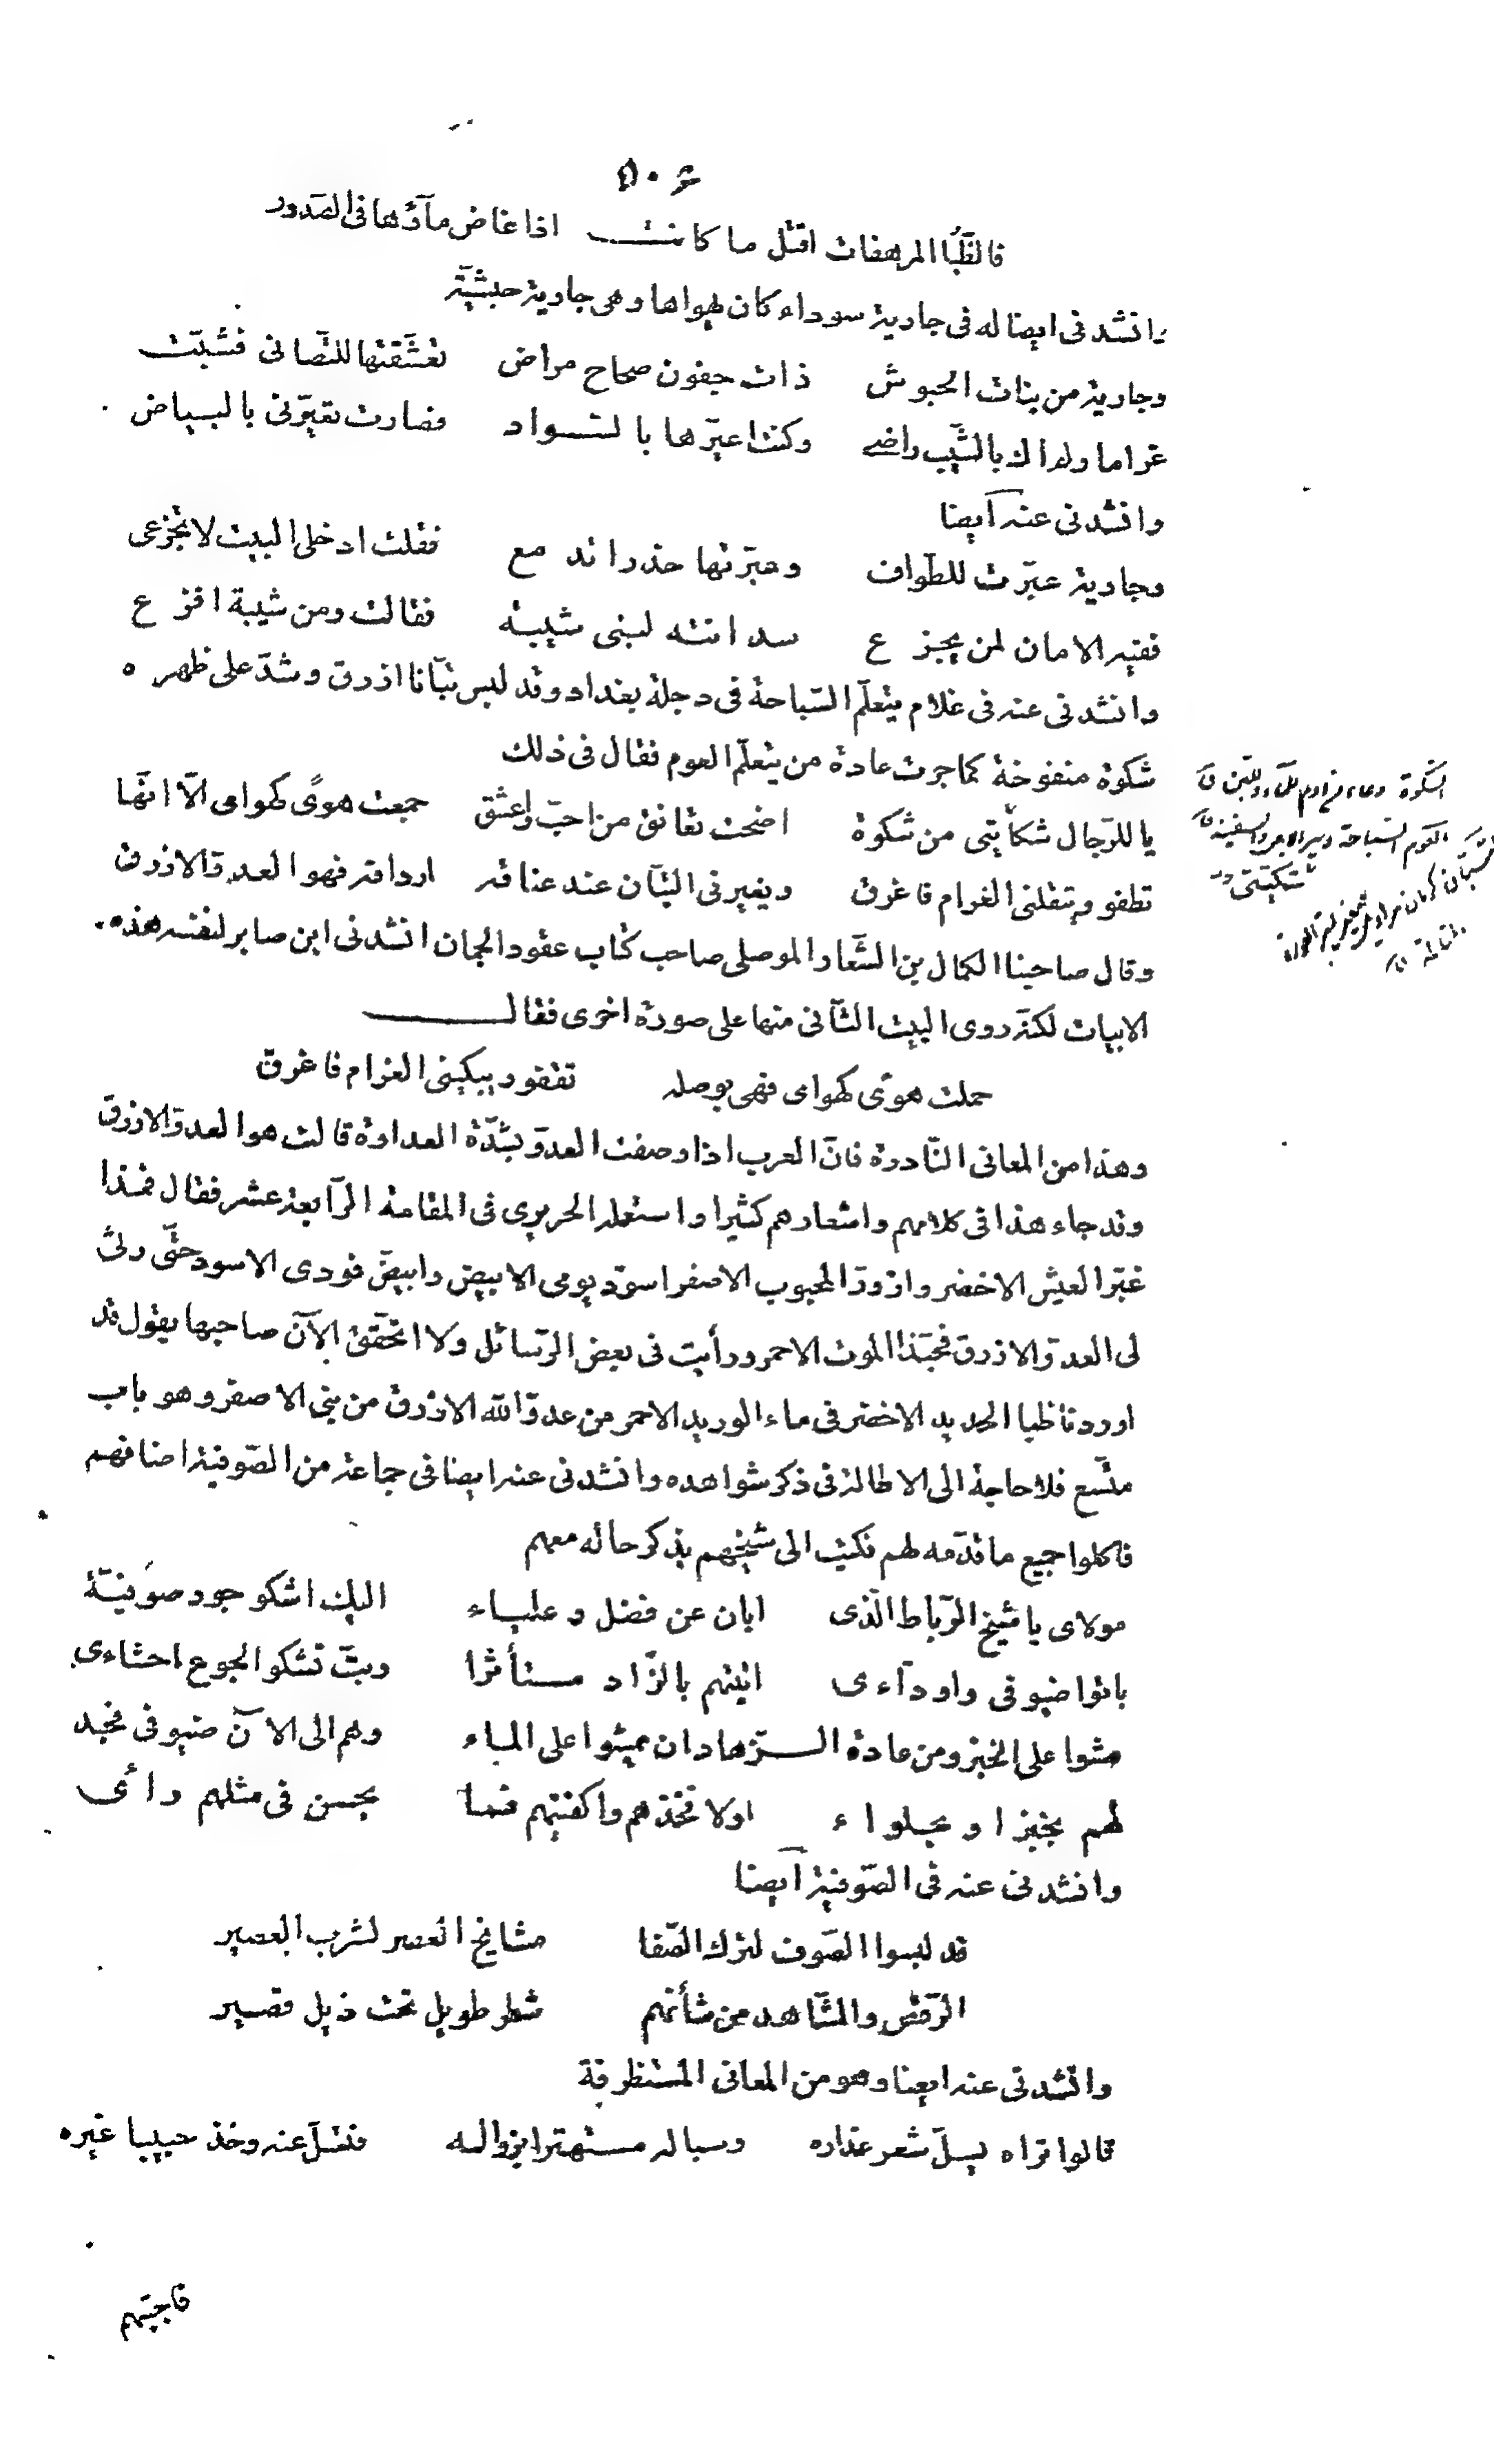 ٥٠٤
فالظُّبا المرهفات اقتل ما كانت اذا غاض مآؤها فى الصّدور
وانشدنى ايضا له فى جارية سوداء كان يهواها وهى جارية حبشيّة
وجارية من بنات الحبوش ذات جفون صحاح مراض تعشّقتها للتّصابى فشبّت
غراما ولم اك بالشّيب راضى وكنت اعيّرها بالسّواد فصارت تعيّرنى بالبياض
وانشدنى عنه ايضا
وجارية عبرت للطّواف وعبرتها حذرا تدمع فقلت ادخلى البيت لا تجزعى
ففيه الامان لمن يجزع سدانته لبنى شيبة فقالت ومن شيبة افزع
وانشدنى عنه فى غلام يتعلّم السّباحة فى دجلة بغداد وقد لبس تبّانا ازرق وشدّ على ظهره
شكوة منفوخة كما جرت عادة من يتعلّم العوم فقال فى ذلك
يا للرّجال شكايتى من شكوة اضحت تعانق من احبّ واعشق جمعت هوًى كهواى الّا انّها
تطفو ويثقلنى الغرام فاغرق ويغيرنى التبّان عند عناقه اردافه فهو العدوّ الازرق
وقال صاحبنا الكمال بن الشّعار الموصلى صاحب كتاب عقود الجمان انشدنى ابن صابر لنفسه هذه
الابيات لكنّه روى البيت الثّانى منها على صورة اخرى فقال
حملت هوًى كهواى فهى بوصله تطفو ويبكينى الغرام فاغرق
وهذا من المعانى النّادرة فانّ العرب اذا وصفت العدوّ بشدّة العداوة قالت هو العدوّ الازرق
وقد جاء هذا فى كلامهم واشعارهم كثيرا واستعمله الحريرى فى المقامة الرّابعة عشر فقال فمذا
غبرّ العيش الاخضر وازورّ المحبوب الاصفر اسودّ يومى الابيض وابيضّ فودى الاسود حتّى رثى
لى العدوّ الازرق فحبّذا الموت الاحمر ورأيت فى بعض الرّسائل ولا اتحقّق الآن صاحبها يقول قد
اوردنا ظبا الحديد الاخضر فى ماء الوريد الاحمر من عدوّ الله الازرق من بنى الاصفر وهو باب
متّسع فلا حاجة الى الاطالة فى ذكر شواهده وانشدنى عنه ايضا فى جماعة من الصّوفية اضافهم
فاكلوا جميع ما قدّمه لهم فكتب الى شيخهم يذكر حاله معهم
مولاى يا شيخ الرّباط الّذى ابان عن فضل وعلياء اليك اشكو جور صوفيّة
باتوا ضيوفى واودّآءى اتيتهم بالزّاد مستأثرا وبتّ تشكو الجوع احشاءى
مشوا على الخبز ومن عادة الزّهاد ان يمشوا على الماء وهم الى الآن ضيوفى فجد
لهم بخبز او بحلواء اولا فخذهم واكفنيهم فما يحسن فى مثلهم رأى
وانشدنى عنه فى الصّوفية ايضا
قد لبسوا الصّوف لترك الصّفا مشايخ العصر لشرب العصير
الرّقص والشّاهد من شأنهم شطر طويل تحت ذيل قصير
وانشدنى عنه ايضا وهو من المعانى المستظرفة
قالوا تراه يسلّ شعر عذاره وسباله مستهترا بزواله فتسلّ عنه وخذ حبيبا غيره
فاجبتهم